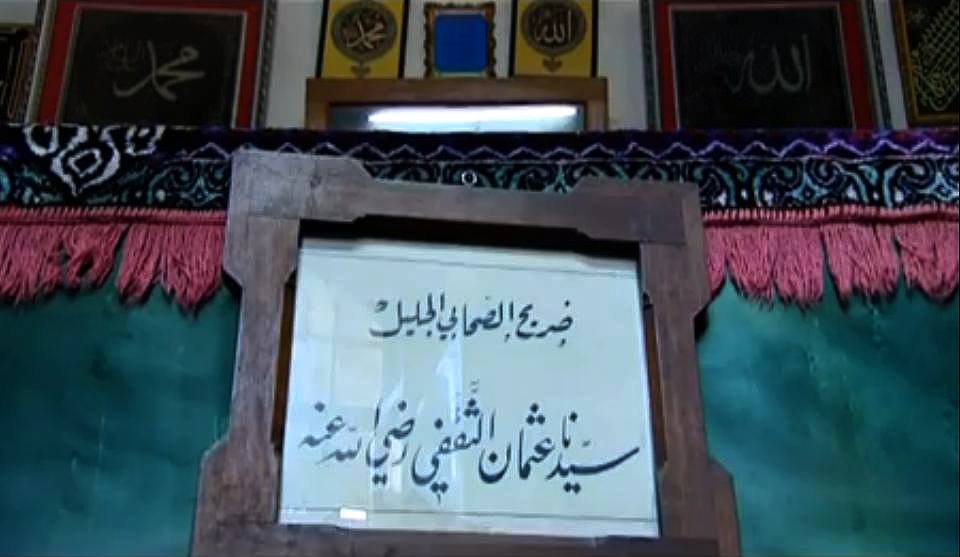 محمد
الله
محمد
الله
ضريح الصحابي الجليل
سيّدنا عثمان الثَّقفي رضي الله عنه